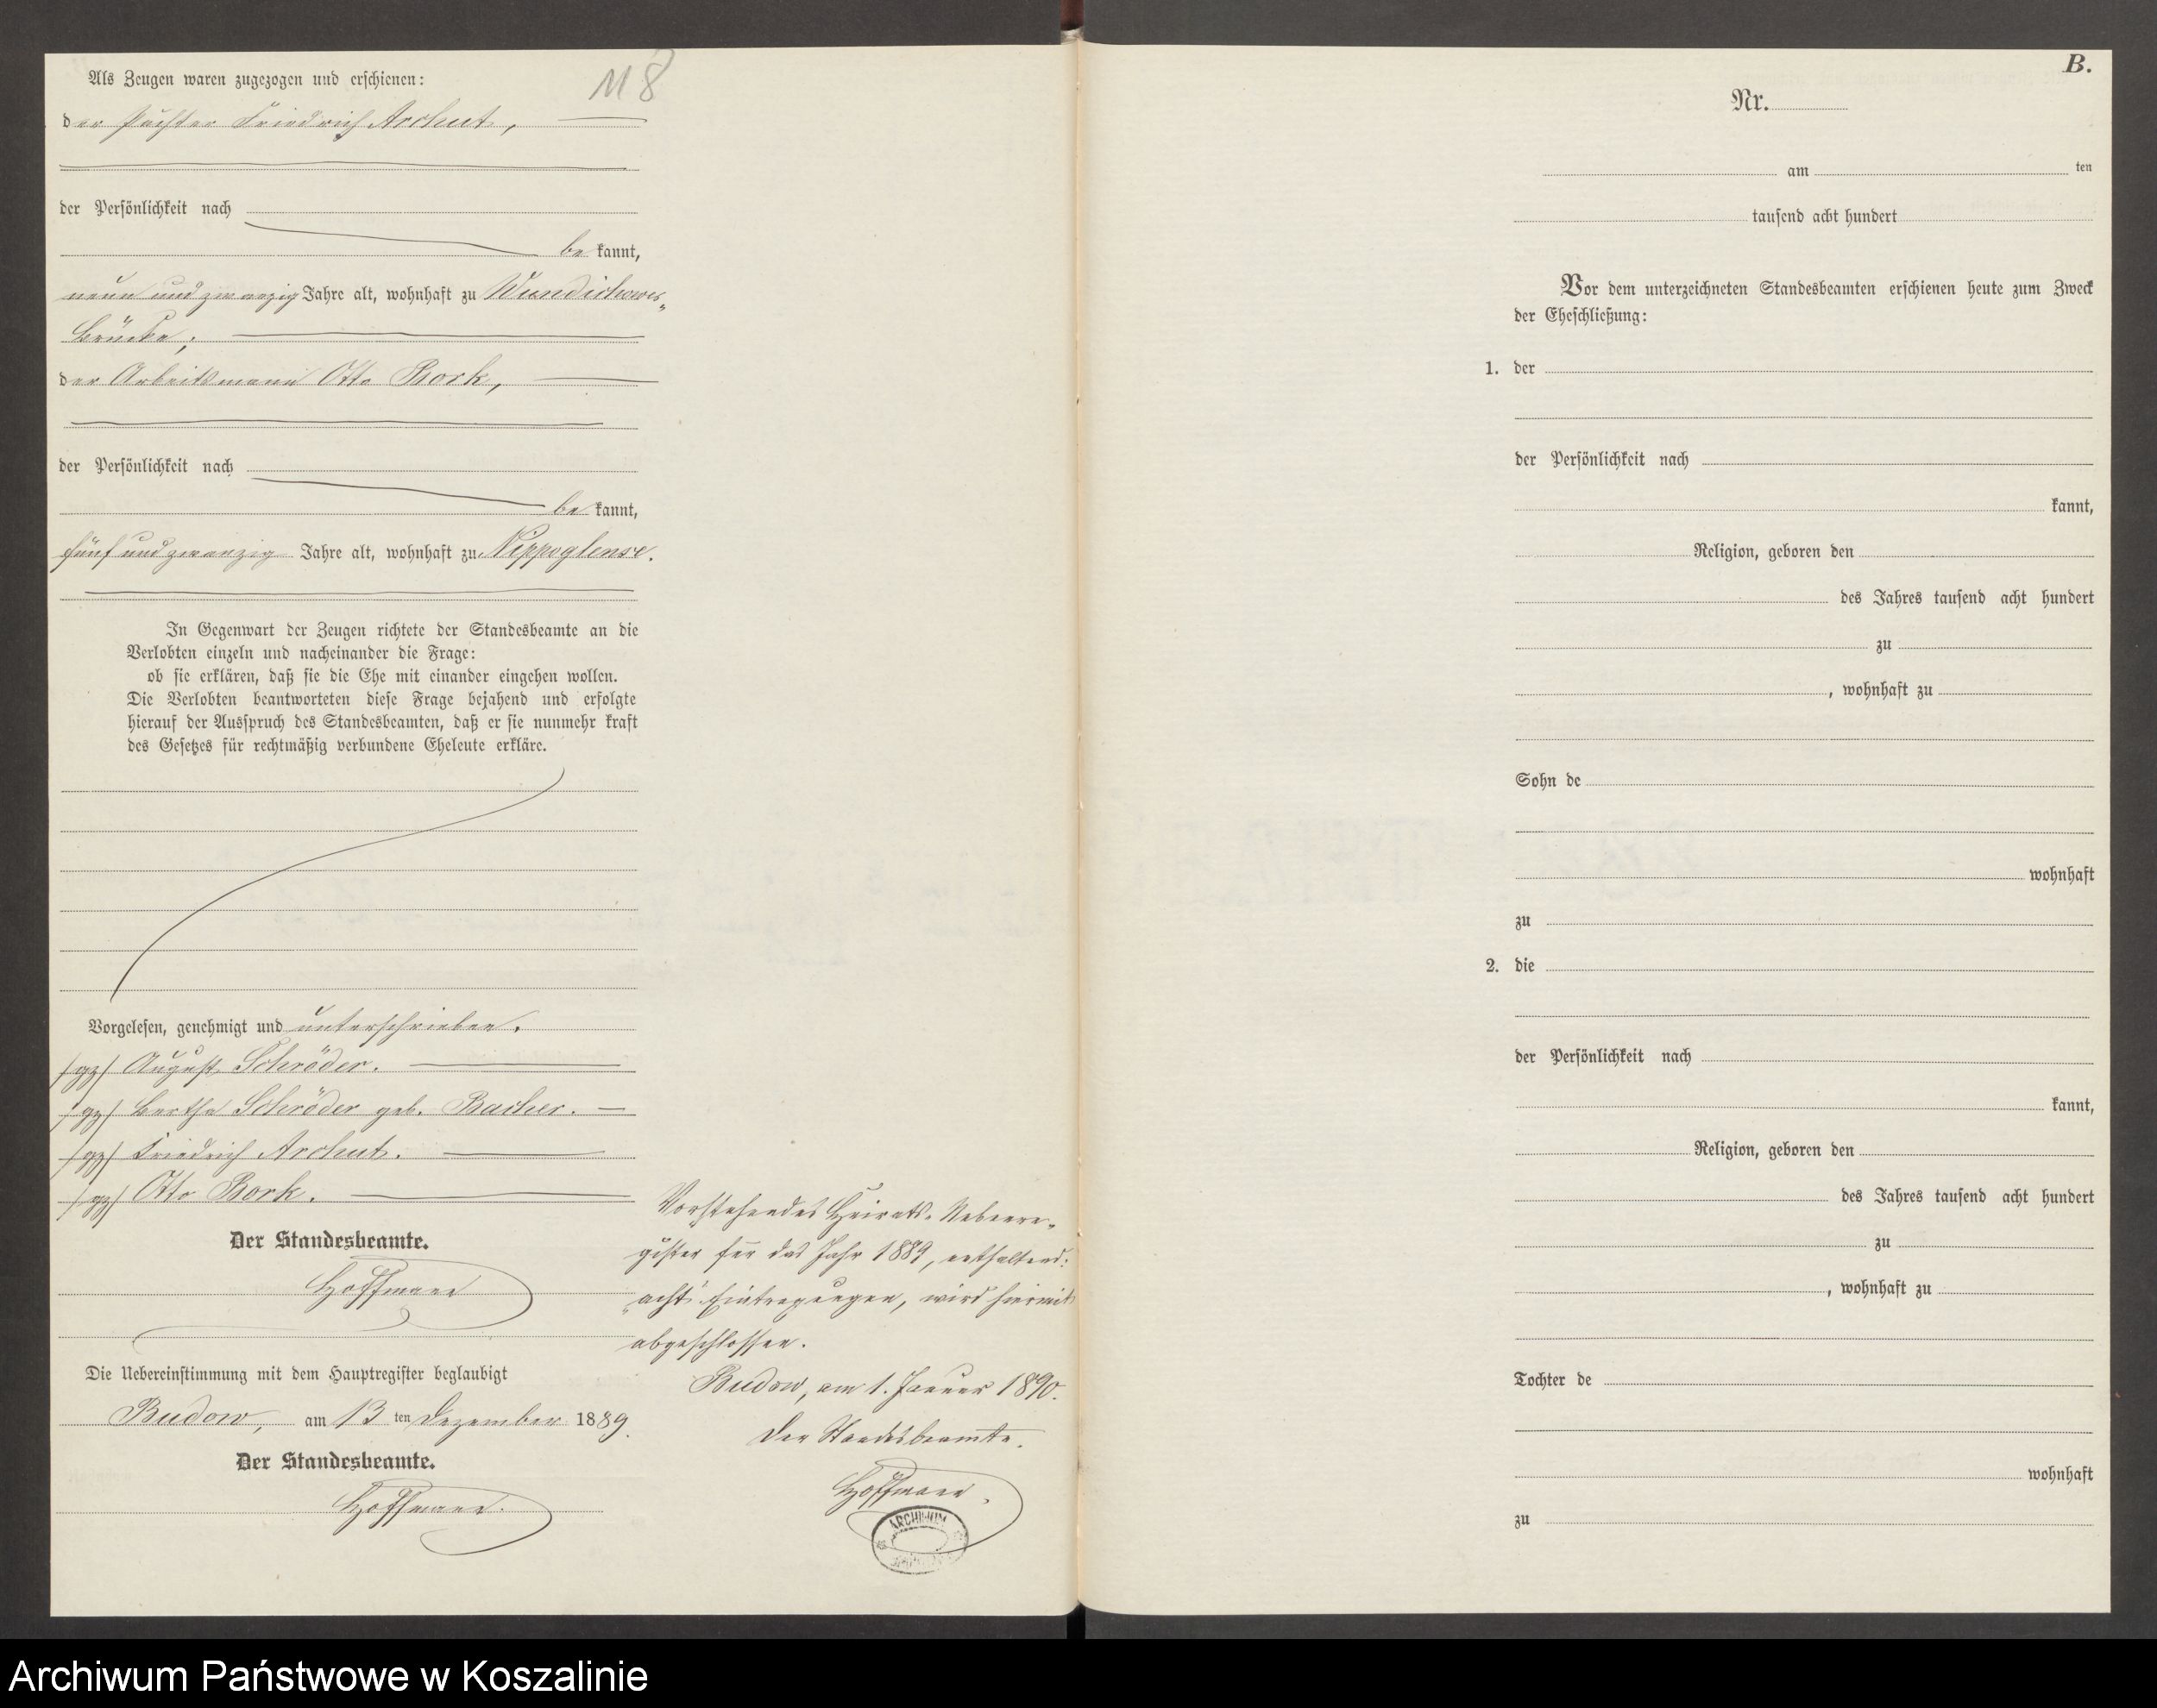 118
Als Zeugen waren zugezogen und erschienen:
der Pächter Friedrich Archut,
der Persönlichkeit nach
be kannt,
neun und zwanzig Jahre alt, wohnhaft zu Wundichower-
brücke;
der Arbeitsmann Otto Bork,
der Persönlichkeit nach
be kannt,
fünf und zwanzig Jahre alt, wohnhaft zu Nippoglense.
In Gegenwart der Zeugen richtete der Standesbeamte an die
Verlobten einzeln und nacheinander die Frage:
ob sie erklären, daß sie die Ehe mit einander eingehen wollen.
Die Verlobten beantworteten diese Frage bejahend und erfolgte
hierauf der Ausspruch des Standesbeamten, daß er sie nunmehr kraft
des Gesetzes für rechtmäßig verbundene Eheleute erkläre.
Vorgelesen, genehmigt und unterschrieben.
/gz/ August Schröder.
/gz/ Bertha Schröder geb. Bacher.
/gz/ Friedrich Archut.
/gz/ Otto Bork.
Der Standesbeamte.
Hoffmann
Die Uebereinstimmung mit dem Hauptregister beglaubigt
Budow, am 13 ten Dezember 1889.
Der Standesbeamte.
Hoffmann.
Vorstehendes Heirats-Nebenre-
gister für das Jahr 1889, enthaltend:
"acht" Eintragungen, wird hiermit
abgeschlossen.
Budow, am 1. Januar 1890.
Der Standesbeamte.
Hoffmann.
ARCHIWUM
B.
Nr.
am ten
tausend acht hundert
Vor dem unterzeichneten Standesbeamten erschienen heute zum Zweck
der Eheschließung:
1. der
der Persönlichkeit nach
kannt,
Religion, geboren den
des Jahres tausend acht hundert
zu
, wohnhaft zu
Sohn de
wohnhaft
zu
2. die
der Persönlichkeit nach
kannt,
Religion, geboren den
des Jahres tausend acht hundert
zu
, wohnhaft zu
Tochter de
wohnhaft
zu
Archiwum Państwowe w Koszalinie